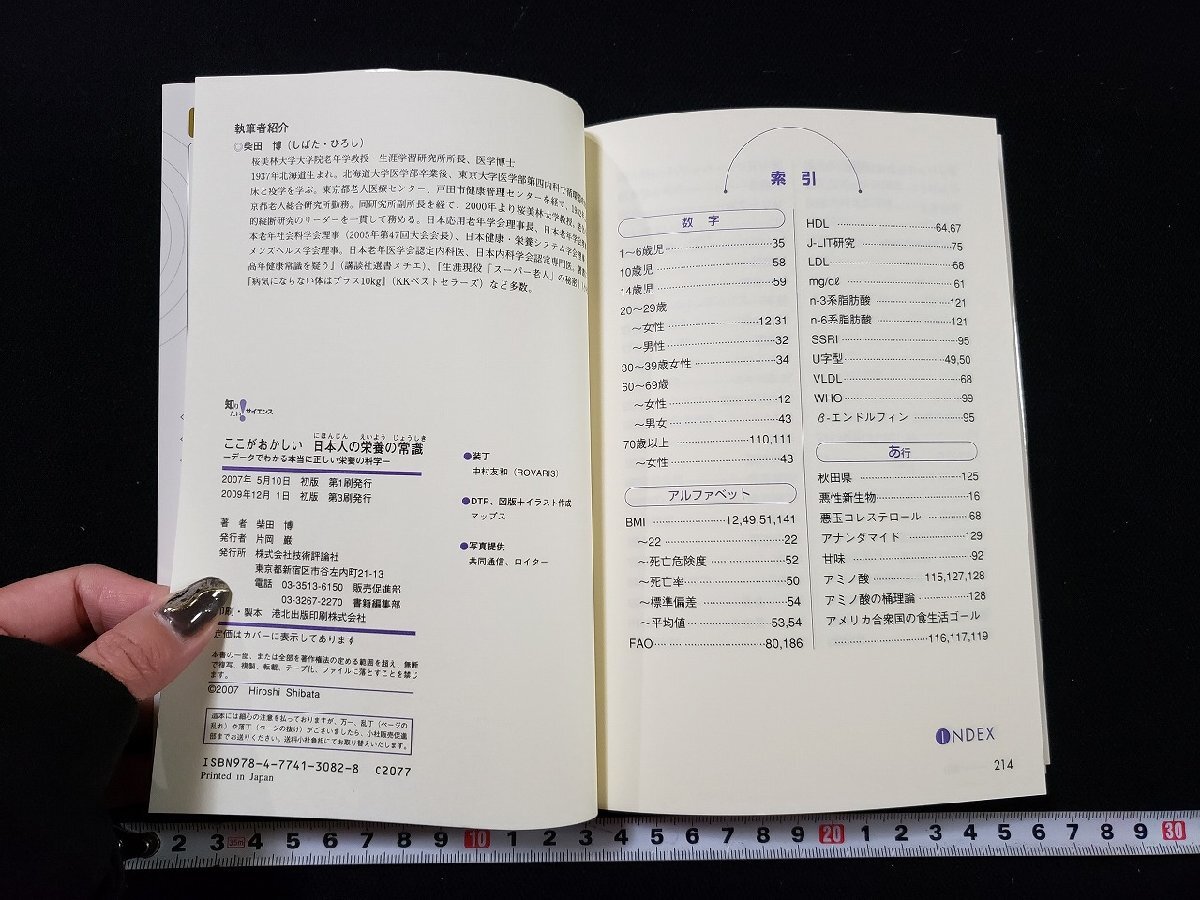 執筆者紹介
○柴田 博(しばた・ひろし)
桜美林大学大学院老年学教授 生涯学習研究所所長、医学博士
1937年北海道生まれ。北海道大学医学部卒業後、東京大学医学部第四内科で循環器
床と疫学を学ぶ。東京都老人医療センター、戸田市健康管理センターを経て、
京都老人総合研究所勤務。同研究所副所長を経て、2000年より桜美林大学教授。
的縦断研究のリーダーを一貫して務める。日本応用老年学会理事長、日本老年学会理事
本老年社会科学会理事(2005年第47回大会会長)、日本健康・栄養システム学会理事
メンズヘルス学会理事。日本老年医学会認定内科医、日本内科学会認定専門医。
高年健康常識を疑う』(講談社選書メチエ)、『生涯現役「スーパー老人」の秘密』
『病気にならない体はプラス10kg』(KKベストセラーズ)など多数。
知りたい!サイエンス
にほんじん えいよう じょうしき
ここがおかしい 日本人の栄養の常識
ーデータでわかる本当に正しい栄養の科学ー
2007年 5月10日 初版 第1刷発行
2009年12月 1日 初版 第3刷発行
著 者 柴田 博
発行者 片岡 巖
発行所 株式会社技術評論社
東京都新宿区市谷左内町21-13
電話 03-3513-6150 販売促進部
03-3267-2270 書籍編集部
印刷・製本 港北出版印刷株式会社
定価はカバーに表示してあります
本書の一部、または全部を著作権法の定める範囲を超え、無断
で複写、複製、転載、テープ化、ファイルに落とすことを禁じ
ます。
©2007 Hiroshi Shibata
造本には細心の注意を払っておりますが、万一、乱丁(ページの
乱れ)や落丁(ページの抜け)がございましたら、小社販売促進
部までお送りください。送料小社負担にてお取り替えいたします。
ISBN978-4-7741-3082-8 C2077
Printed in Japan
●装丁
中村友和(ROVARIS)
●DTP、図版+イラスト作成
マップス
●写真提供
共同通信、ロイター
索引
数字
1〜6歳児 35
10歳児 58
14歳児 59
20〜29歳
〜女性 12,31
〜男性 32
30〜39歳女性 34
60〜69歳
〜女性 12
〜男女 43
70歳以上 110,111
〜女性 43
アルファベット
BMI 12,49,51,141
〜22 22
〜死亡危険度 52
〜死亡率 50
〜標準偏差 54
〜平均値 53,54
FAO 80,186
HDL 64,67
J-LIT研究 75
LDL 68
mg/cℓ 61
n-3系脂肪酸 121
n-6系脂肪酸 121
SSRI 95
U字型 49,50
VLDL 68
WHO 99
β-エンドルフィン 95
あ行
秋田県 125
悪性新生物 16
悪玉コレステロール 68
アナンダマイド 29
甘味 92
アミノ酸 115,127,128
アミノ酸の桶理論 128
アメリカ合衆国の食生活ゴール
116,117,119
INDEX
214
2 3 35m 4 5 6 7 8 9 10 1 2 3 4 5 6 7 8 9 20 1 2 3 4 5 6 7 8 9 30